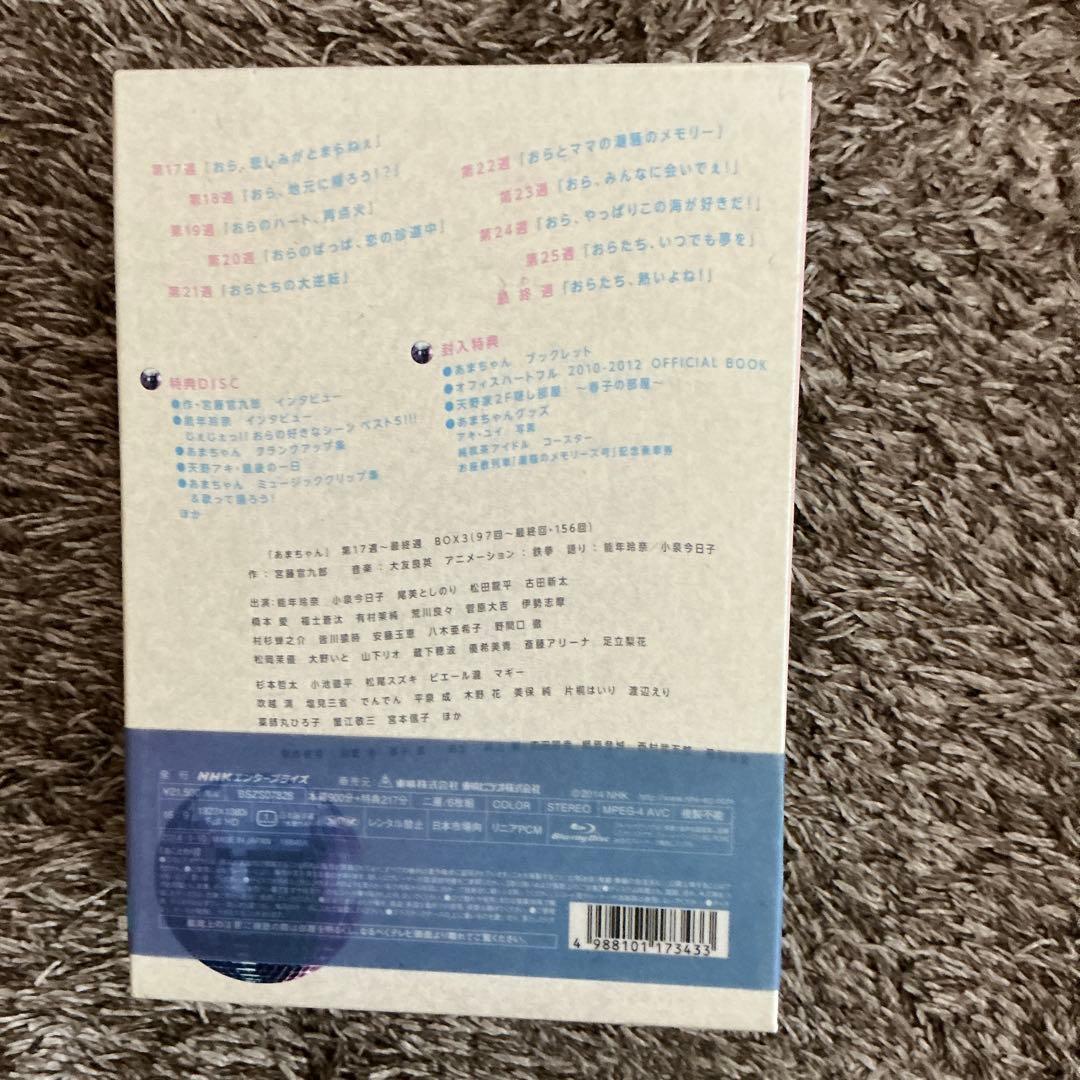 第17週「おら、悲しみがとまらねぇ」
第18週「おら、地元に帰ろう!?」
第19週「おらのハート、再点火」
第20週「おらのばっぱ、恋の珍道中」
第21週「おらたちの大逆転」
第22週「おらとママの潮騒のメモリー」
第23週「おら、みんなに会いでぇ!」
第24週「おら、やっぱりこの海が好きだ!」
第25週「おらたち、いつでも夢を」
最終週「おらたち、熱いよね!」
特典DISC
●作・宮藤官九郎 インタビュー
●能年玲奈 インタビュー
じぇじぇっ!! おらの好きなシーン ベスト5!!!
●あまちゃん クランクアップ集
●天野アキ・最後の一日
●あまちゃん ミュージッククリップ集
&歌って踊ろう!
ほか
封入特典
●あまちゃん ブックレット
●オフィスハートフル 2010-2012 OFFICIAL BOOK
●天野家2F隠し部屋 〜春子の部屋〜
●あまちゃんグッズ
アキ・ユイ 写真
純喫茶アイドル コースター
お座敷列車「潮騒のメモリーズ号」記念乗車券
「あまちゃん」 第17週〜最終週 BOX3(97回〜最終回・156回)
作:宮藤官九郎 音楽:大友良英 アニメーション:鉄拳 語り:能年玲奈/小泉今日子
出演:能年玲奈 小泉今日子 尾美としのり 松田龍平 古田新太
橋本 愛 福士蒼汰 有村架純 荒川良々 菅原大吉 伊勢志摩
村杉蝉之介 皆川猿時 安藤玉恵 八木亜希子 野間口 徹
松岡茉優 大野いと 山下リオ 蔵下穂波 優希美青 斎藤アリーナ 足立梨花
杉本哲太 小池徹平 松尾スズキ ピエール瀧 マギー
吹越 満 塩見三省 でんでん 平泉 成 木野 花 美保 純 片桐はいり 渡辺えり
薬師丸ひろ子 蟹江敬三 宮本信子 ほか
発行 NHKエンタープライズ 販売元 東映株式会社 東映ビデオ株式会社 ©2014 NHK
BSZS07826 本編900分+特典217分 二層/6枚組 COLOR STEREO MPEG-4 AVC 複製不能
レンタル禁止 日本市場向 リニアPCM Blu-ray Disc
MADE IN JAPAN
4 988101 173433